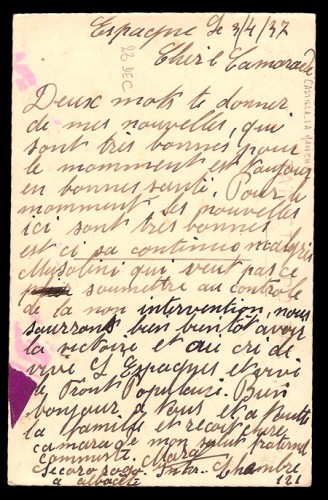 Espagne le 3/4/37
Cher Camarade
22 DEC
CASTILLA-LA MANCHA
Deux mots te donner
de mes nouvelles, qui
sont très bonnes pour
le momment est toujour
en bonnes santé. Pour le
momment les nouvelles
ici sont très bonnes
est ci sa continue malgrès
Musolini qui veut pas ce
soumettre au controle
de la non intervention, nous
saurrons bien bientôt avoir
la victoire et au cri de
vive L'Espagnes et vive
le Front Populaire. Bien
bonjour a vous et a toute
la famille et reçoit cher
camarade mon salut fraternel
communiste. Marcel
Secoro rogo Inter. Chambre
a albacete 121